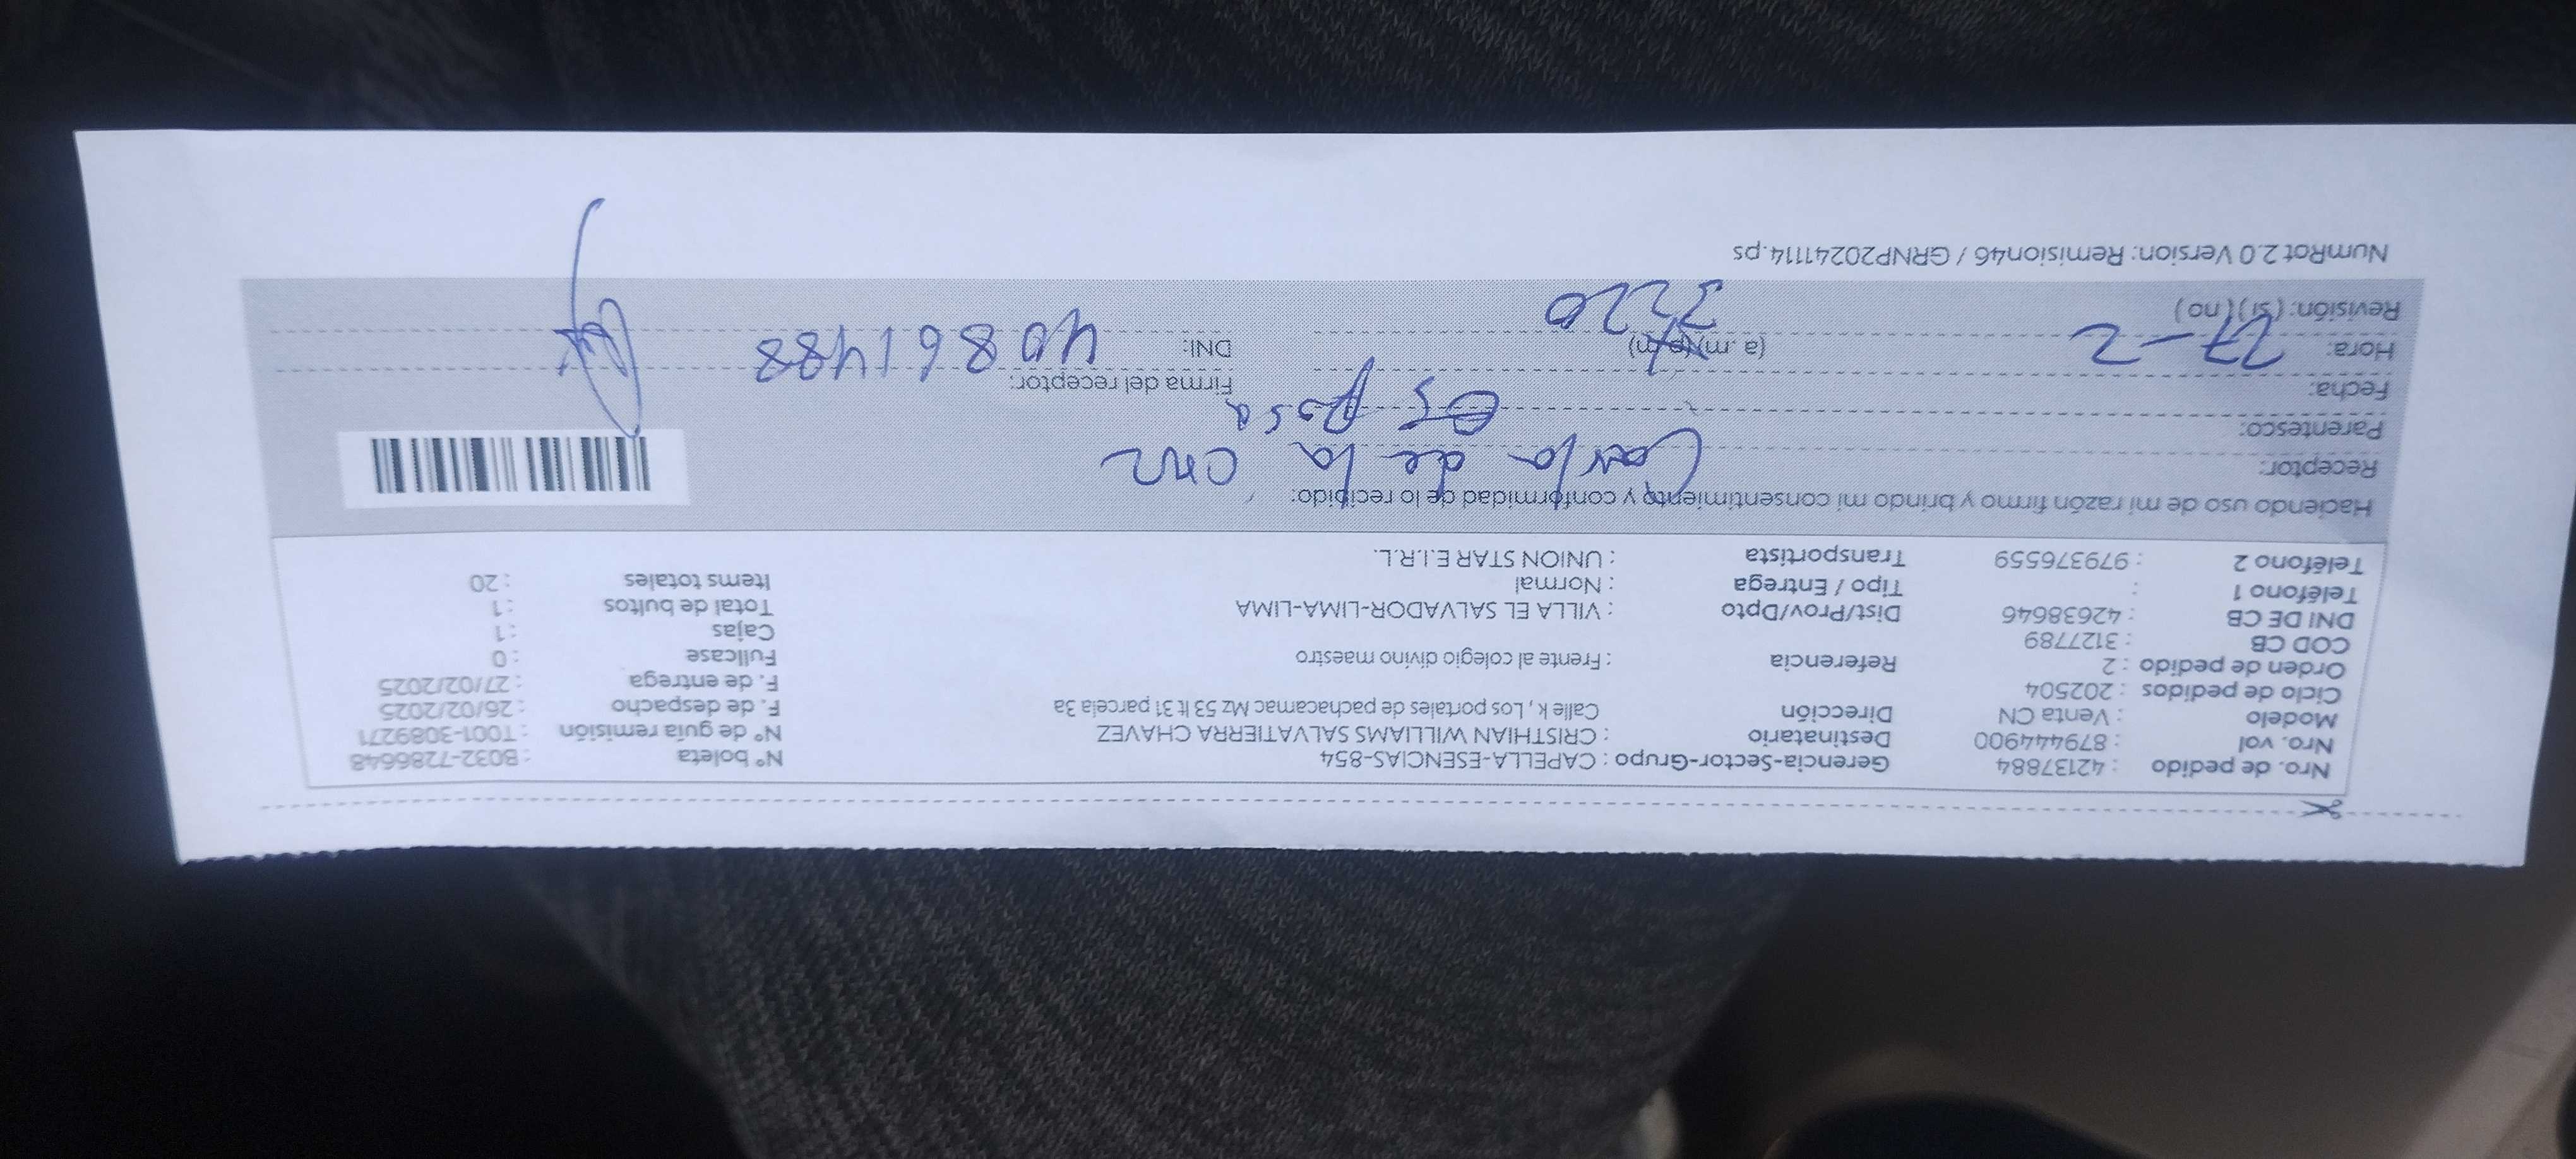 Nro. de pedido : 42137884 Gerencia-Sector-Grupo : CAPELLA-ESENCIAS-854 N° boleta : B032-7286648
Nro. vol : 879444900 Destinatario : CRISTHIAN WILLIAMS SALVATIERRA CHAVEZ N° de guía remisión : T001-3089271
Modelo : Venta CN Dirección Calle k, Los portales de pachacamac Mz 53 lt 31 parcela 3a F. de despacho : 26/02/2025
Ciclo de pedidos : 202504 F. de entrega : 27/02/2025
Orden de pedido : 2 Referencia : Frente al colegio divino maestro Fullcase : 0
COD CB : 3127789 Cajas : 1
DNI DE CB : 42638646 Dist/Prov/Dpto : VILLA EL SALVADOR-LIMA-LIMA Total de bultos : 1
Teléfono 1 : Tipo / Entrega : Normal Items totales : 20
Teléfono 2 : 979376559 Transportista : UNION STAR E.I.R.L.
Haciendo uso de mi razón firmo y brindo mi consentimiento y conformidad de lo recibido:
Receptor: Carla de la Cruz
Parentesco: esposa
Fecha: 27-2 Firma del receptor:
Hora: (a.m)(p.m) 3:20 DNI: 40861488
Revisión: (si)(no)
NumRot 2.0 Version: Remision46 / GRNP20241114.ps